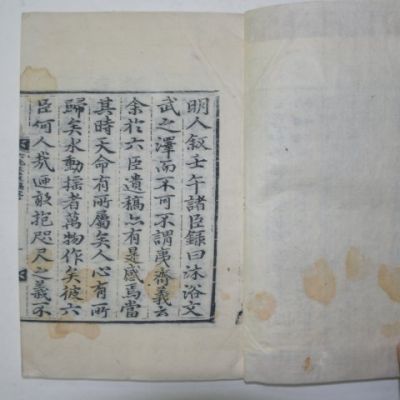 明人叙壬午諸臣錄曰沐浴文
武之澤而不可不謂夷齊義云
余於六臣遺稿亦有是感焉當
其時天命有所屬矣人心有所
歸矣水動揺者萬物作矣彼六
臣何人哉迺敢抱咫尺之義不